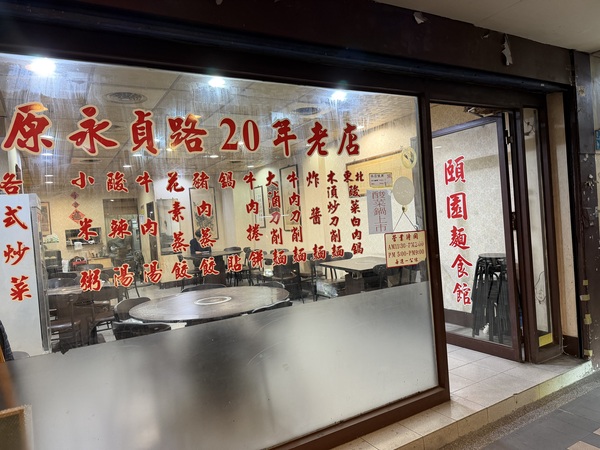 原永貞路20年老店
各式炒菜
小米粥
酸辣湯
牛肉湯
花素蒸餃
豬肉蒸餃
鍋貼
牛肉捲餅
大滷刀削麵
牛肉刀削麵
炸醬麵
木須炒刀削麵
東北酸菜白肉鍋
酸菜鍋上市
營業時間
AM11:30-PM2:00
PM5:00-PM9:00
頤園麵食館